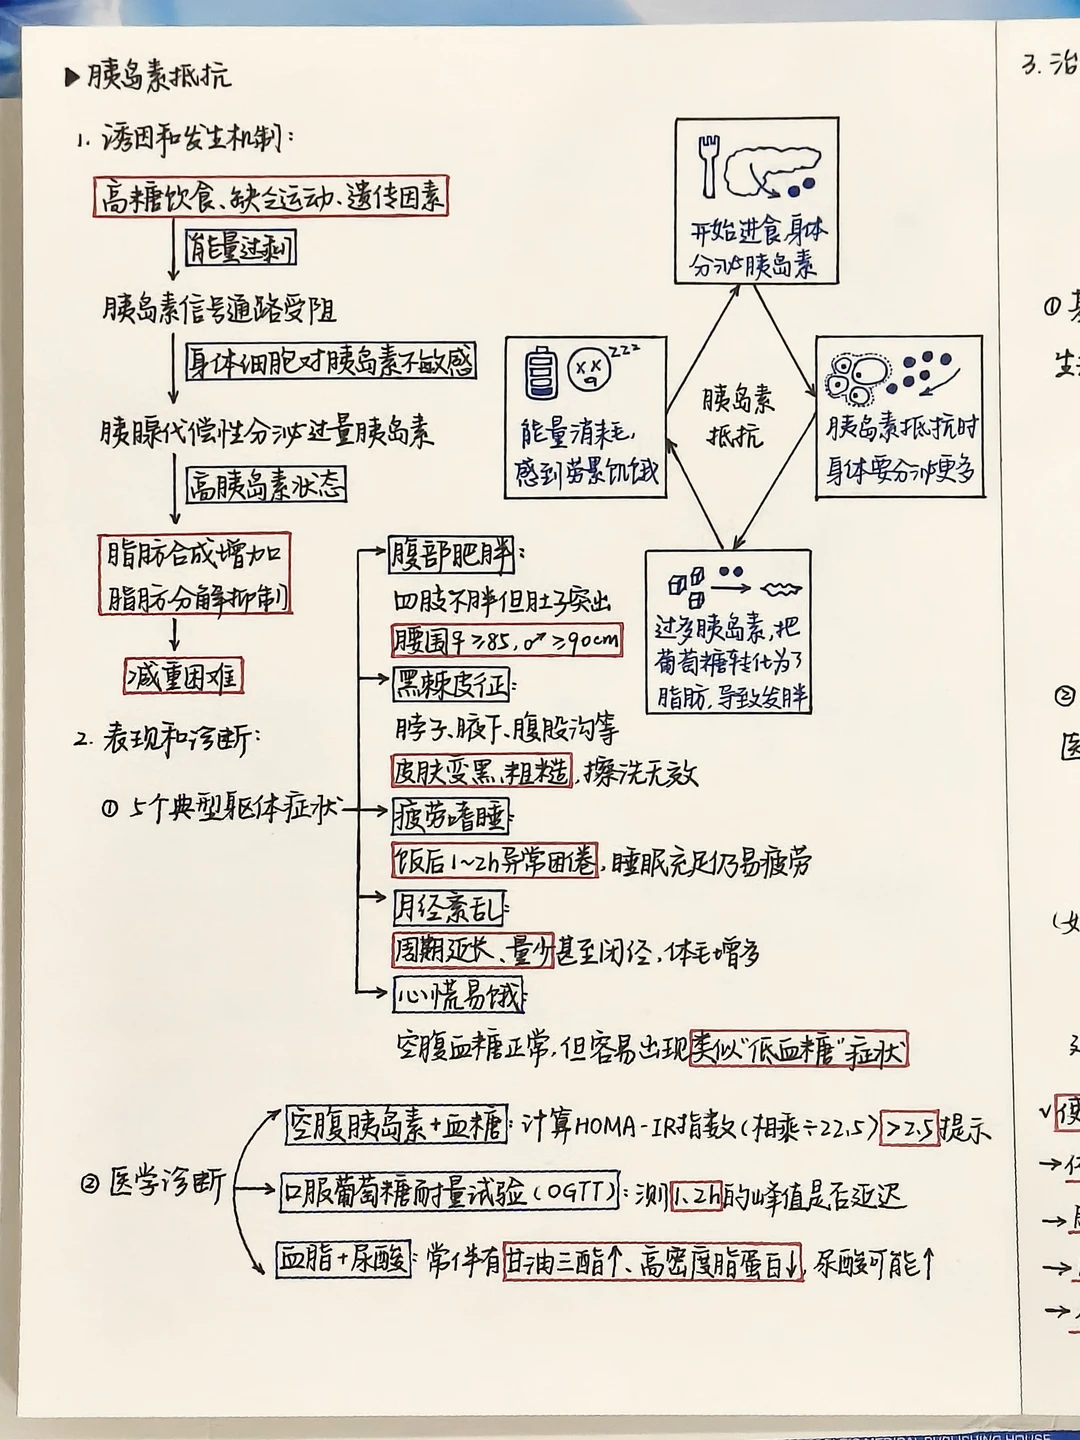 ▶胰岛素抵抗
1. 诱因和发生机制:
高糖饮食、缺乏运动、遗传因素
能量过剩
胰岛素信号通路受阻
身体细胞对胰岛素不敏感
胰腺代偿性分泌过量胰岛素
高胰岛素状态
脂肪合成增加
脂肪分解抑制
减重困难
开始进食,身体
分泌胰岛素
胰岛素抵抗时
身体要分泌更多
过多胰岛素,把
葡萄糖转化为了
脂肪,导致发胖
zzz
能量消耗,
感到劳累饥饿
胰岛素
抵抗
2. 表现和诊断:
① 5个典型躯体症状
腹部肥胖:
四肢不胖但肚子突出
腰围♀≥85,♂≥90cm
黑棘皮征:
脖子、腋下、腹股沟等
皮肤变黑、粗糙,擦洗无效
疲劳嗜睡:
饭后1~2h异常困倦,睡眠充足仍易疲劳
月经紊乱:
周期延长、量少甚至闭经,体毛增多
心慌易饿:
空腹血糖正常,但容易出现类似“低血糖”症状
② 医学诊断
空腹胰岛素+血糖:计算HOMA-IR指数(相乘÷22.5)>2.5提示
口服葡萄糖耐量试验(OGTT):测1.2h的峰值是否延迟
血脂+尿酸:常伴有甘油三酯↑、高密度脂蛋白↓,尿酸可能↑
3. 治
①
生
②
医
(女
√
→
→
→
→
MEDICAL PUBLISHING HOUSE